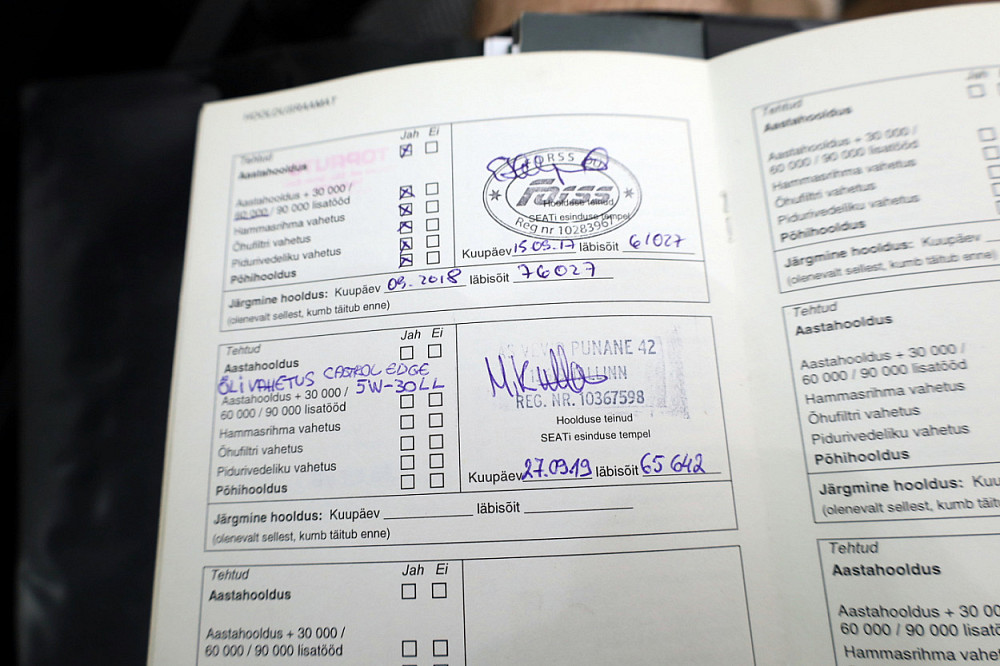 HOOLDUSRAAMAT
Tehtud Jah Ei
Aastahooldus
Aastahooldus + 30 000 /
60 000 / 90 000 lisatööd
Hammasrihma vahetus
Õhufiltri vahetus
Pidurivedeliku vahetus
Põhihooldus
Hoolduse teinud
SEATi esinduse tempel
Reg nr 10283967
Kuupäev 15.09.17 läbisõit 61027
Järgmine hooldus: Kuupäev 09.2018 läbisõit 76027
(olenevalt sellest, kumb täitub enne)
Tehtud Jah Ei
Aastahooldus
ÕLIVAHETUS CASTROL EDGE
5W-30LL
Aastahooldus + 30 000 /
60 000 / 90 000 lisatööd
Hammasrihma vahetus
Õhufiltri vahetus
Pidurivedeliku vahetus
Põhihooldus
PUNANE 42
REG. NR. 10367598
Hoolduse teinud
SEATi esinduse tempel
Kuupäev 27.09.19 läbisõit 65 642
Järgmine hooldus: Kuupäev läbisõit
(olenevalt sellest, kumb täitub enne)
Tehtud Jah Ei
Aastahooldus
Aastahooldus + 30 000 /
60 000 / 90 000 lisatööd
Tehtud Jah
Aastahooldus
Aastahooldus + 30 000 /
60 000 / 90 000 lisatööd
Hammasrihma vahetus
Õhufiltri vahetus
Pidurivedeliku vahetus
Põhihooldus
Järgmine hooldus: Kuupäev
(olenevalt sellest, kumb täitub enne)
Tehtud
Aastahooldus
Aastahooldus + 30 000 /
60 000 / 90 000 lisatööd
Hammasrihma vahetus
Õhufiltri vahetus
Pidurivedeliku vahetus
Põhihooldus
Järgmine hooldus: Kuu
(olenevalt sellest, kumb tä
Tehtud
Aastahooldus
Aastahooldus + 30 00
60 000 / 90 000 lisatö
Hammasrihma vahe